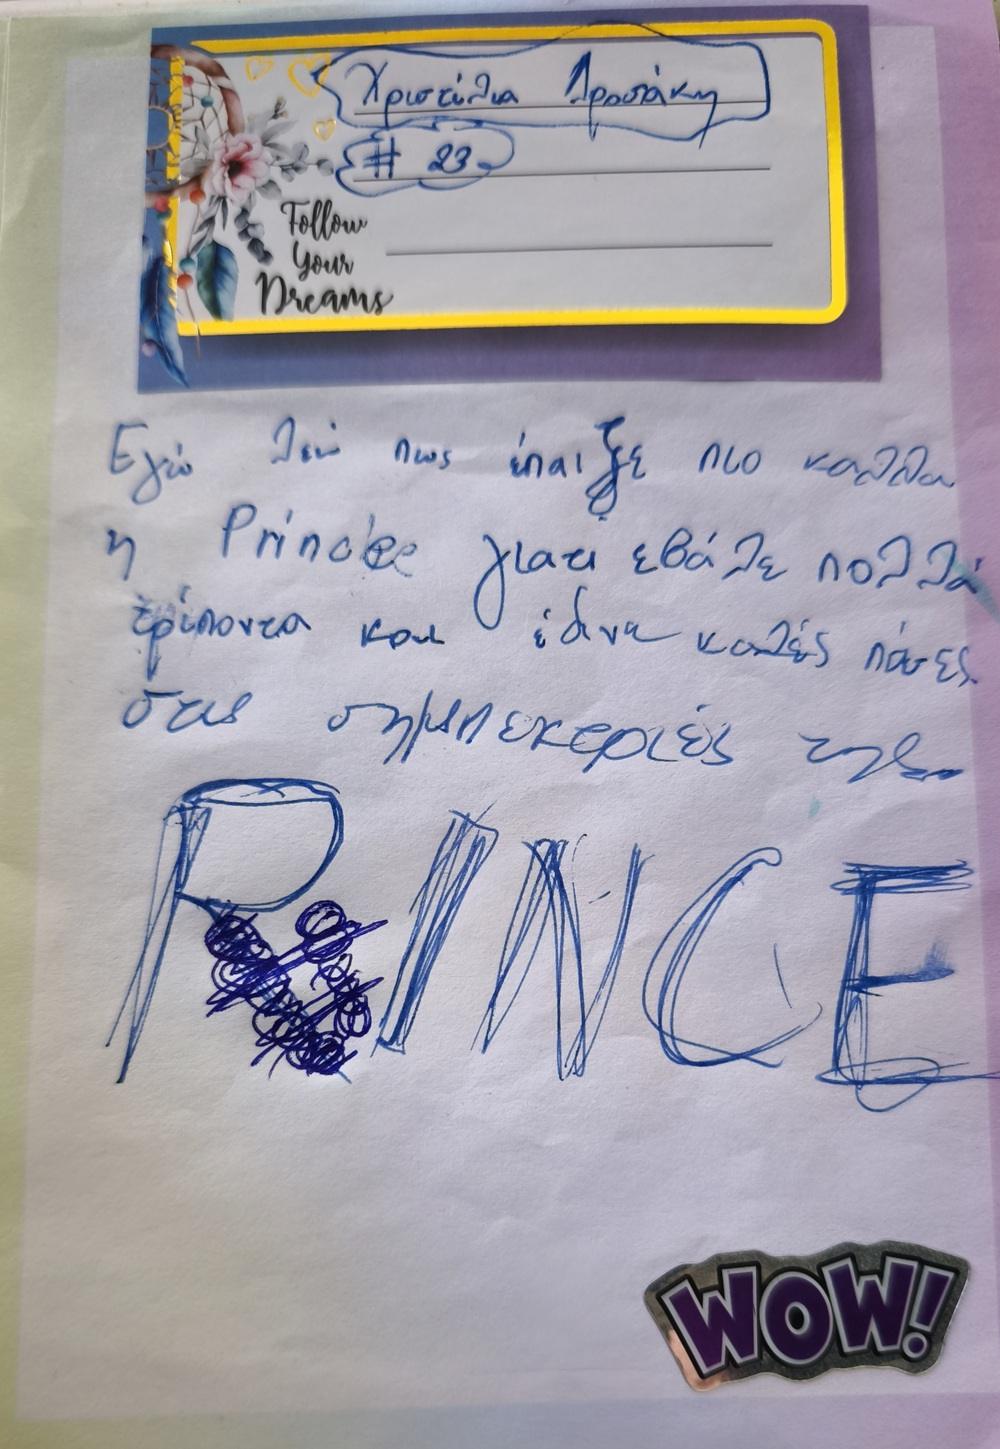 Χριστίλια Δροσάκη
# 23
Follow
Your
Dreams
Εγώ λεώ πως έπαιξε πιο καλλα
η Prince γιατι εβάλε πολλά
τρίποντα και έδινε καλές πάσες
στις σημπεκτριές της
PRINCE
WOW!